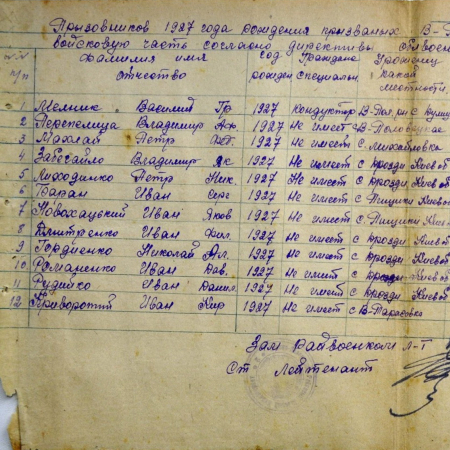 Призовников 1927 года рождения призваных В-
войсковую часть согласно директивы облвоен
№ фамилия имя год Граждан Уроженец
п/п отчество рожден специальн какой
местности
1 Мельник Василий Гр 1927 кондуктор
2 Перепелица Владимир 1927 Не имеет
3 Петр 1927 Не имеет с Михайловка
4 Забегайло Владимир Як 1927 Не имеет с Дрозди Киевоб
5 Лиходинко Петр Ник. 1927 Не имеет с Дрозди Киевоб
6 Баран Иван Серг 1927 Не имеет с Пищики Киевоб
7 Новохацький Иван Яков 1927 Не имеет с Пищики
8 Дмитренко Иван Фил. 1927 Не имеет с Дрозди Киевоб
9 Гордиенко Николай Ал. 1927 Не имеет с Дрозди Киевоб
10 Романенко Иван Дав. 1927 Не имеет с Дрозди Киевоб
11 Рудийко Иван Данил 1927 Не имеет с Дрозди Киевоб
12 Приворотий Иван Кир 1927 Не имеет с В-Тарасовка
Зам Райвоенком л-т
Ст лейтенант